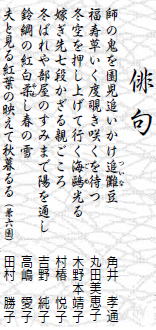 俳句
師の鬼を園児追いかけ追儺豆 角井 孝通
ついな
福寿草いく度覗き咲くを待つ 丸田美恵子
冬空を押し上げて行く海鷗光る 木野本靖子
嫁ぎ先七段かざる親ごころ 村椿 悦子
冬ばれや部屋のすみまで陽を通し 吉野 純子
鈴鋼の紅白柔し春の雪 高嶋 愛子
夫と見る紅葉の映えて秋暮るる (兼六園) 田村 勝子